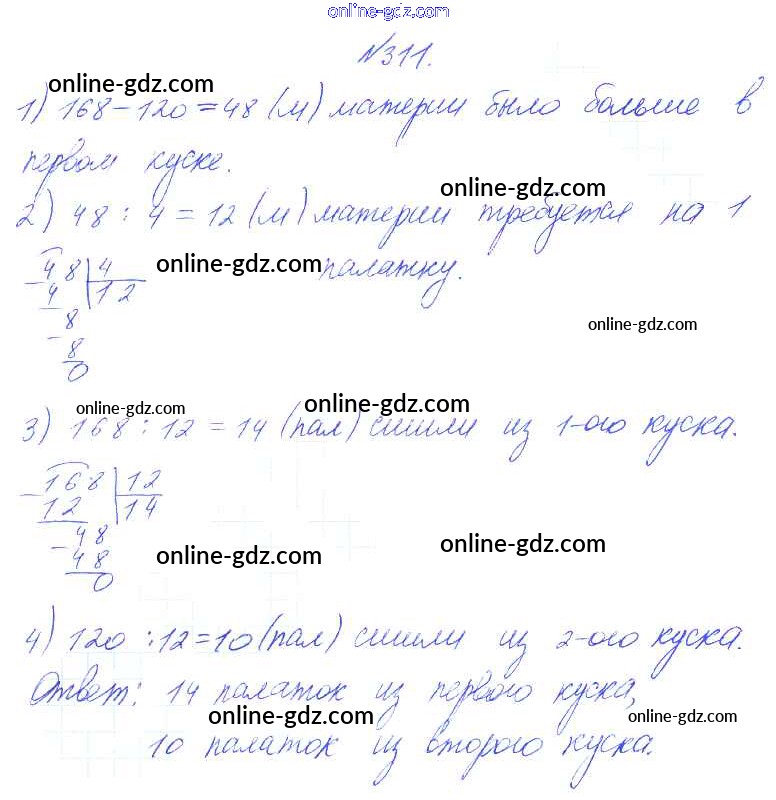 online-gdz.com
№311.
online-gdz.com
1) 168-120=48 (м) материи было больше в
первом куске.
online-gdz.com
2) 48 : 4 = 12 (м) материи требуется на 1
48 4 online-gdz.com палатку.
4 12
8
online-gdz.com
8
0
online-gdz.com online-gdz.com
3) 168 : 12 = 14 (пал) сшили из 1-ого куска.
168 12
12 14
48
48 online-gdz.com online-gdz.com
0
4) 120 :12=10 (пал) сшили из 2-ого куска.
Ответ: 14 палаток из первого куска,
online-gdz.com online-gdz.com
10 палаток из второго куска.